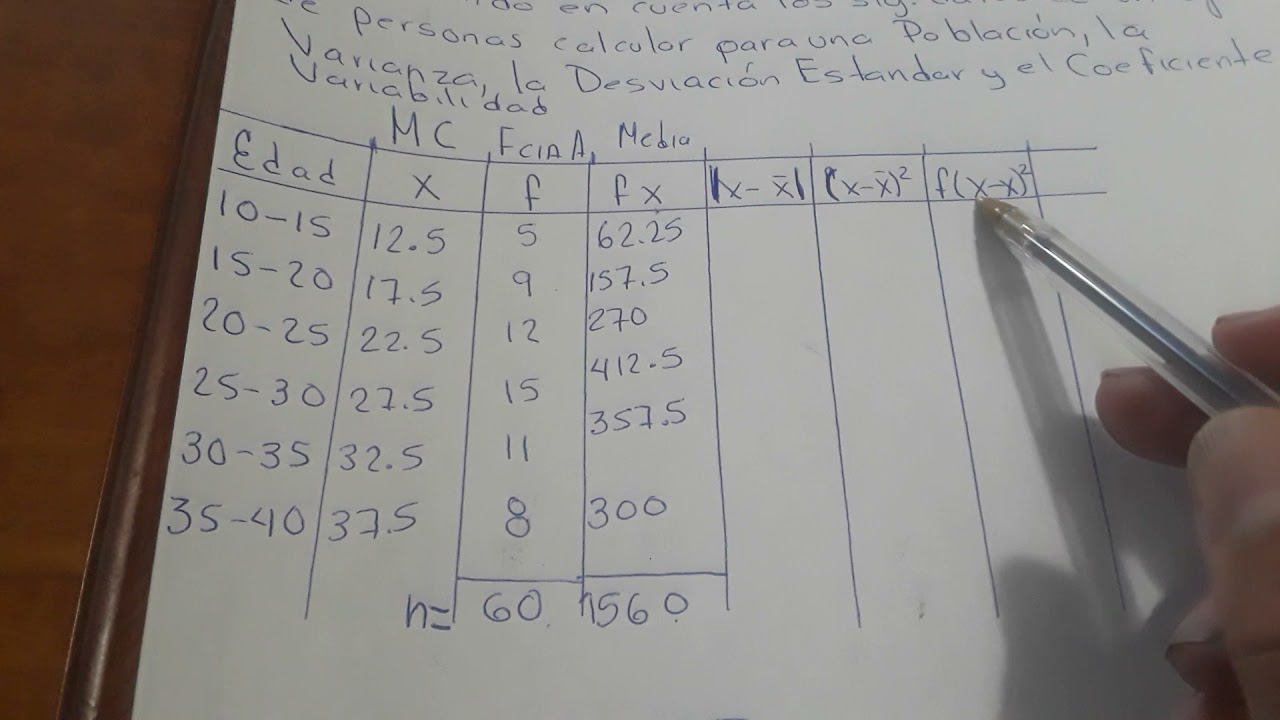 en cuenta los
Personas calcular para una Población, la
Varianza, la Desviación Estandar y el Coeficiente
Variabilidad
Edad MC FCIA A Media
X f f x |x- x̄| (x-x̄)² f(x-x)²
10-15 12.5 5 62.25
15-20 17.5 9 157.5
20-25 22.5 12 270
25-30 27.5 15 412.5
30-35 32.5 11 357.5
35-40 37.5 8 300
n= 60 1560